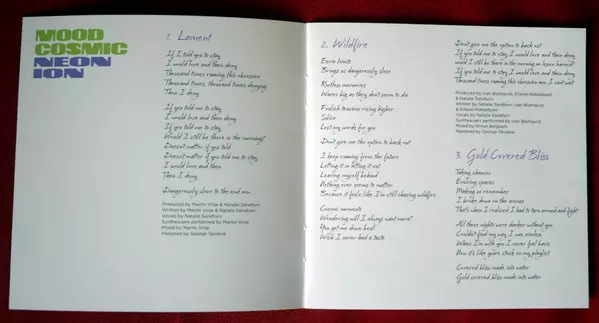 MOOD
COSMIC
NEON
ION
1. Lament
If I told you to stay
I would love and then deny
Thousand times running this obsession
Thousand times, thousand times denying
Then I deny
If you told me to stay
I would love and then deny
If you told me to stay
Would I still be there in the morning?
Doesn't matter if you told
Doesn't matter if you told me to stay
I would love and then
Then I deny
Dangerously close to the end now
Produced by Martin Virgo & Natalie Sandtorv
Written by Martin Virgo & Natalie Sandtorv
Vocals by Natalie Sandtorv
Synthesizers performed by Martin Virgo
Mixed by Martin Virgo
Mastered by George Tanderø
2. Wildfire
Eerie limits
Brings us dangerously close
Restless memories
Waves big as they don't seem to die
Foolish tensions rising higher
Solice
Lost my words for you
Don't give me the option to back out
I keep running from the future
Letting it in letting it out
Leaving myself behind
Nothing ever seems to matter
Because it feels like I'm still chasing wildfire
Cosmic moments
Wondering will I always want more?
You got me down beat
Wish I never had a taste
Don't give me the option to back out
If you told me to stay I would love and then deny
would I still be there in the morning or lesson learned?
If you told me to stay I would love and then deny
Thousand times running this obsession now I can't wait
Produced by Ivan Blomqvist, Erland Mokkelbost
& Natalie Sandtorv
Written by Natalie Sandtorv, Ivan Blomqvist
& Erland Mokkelbost
Vocals by Natalie Sandtorv
Synthesizers performed by Ivan Blomqvist
Mixed by Simon Bergseth
Mastered by George Tanderø
3. Gold Covered Bliss
Taking chances
Evolving spaces
Making us remember
I broke down on the avenue
That's when I realized I had to turn around and fight
All those nights were darker without you
Couldn't find my way, I was aimless
When I'm with you I never feel basic
Now it's like you're stuck on my playlist
Covered bliss made into water
Gold covered bliss made into water